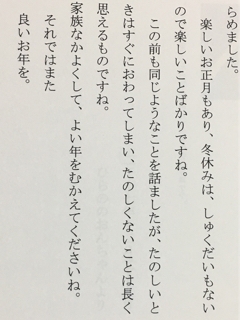 らめました。
　楽しいお正月もあり、冬休みは、しゅくだいもない
ので楽しいことばかりですね。
　この前も同じようなことを話ましたが、たのしいと
きはすぐにおわってしまい、たのしくないことは長く
思えるものですね。
家族なかよくして、よい年をむかえてくださいね。
　それではまた
良いお年を。